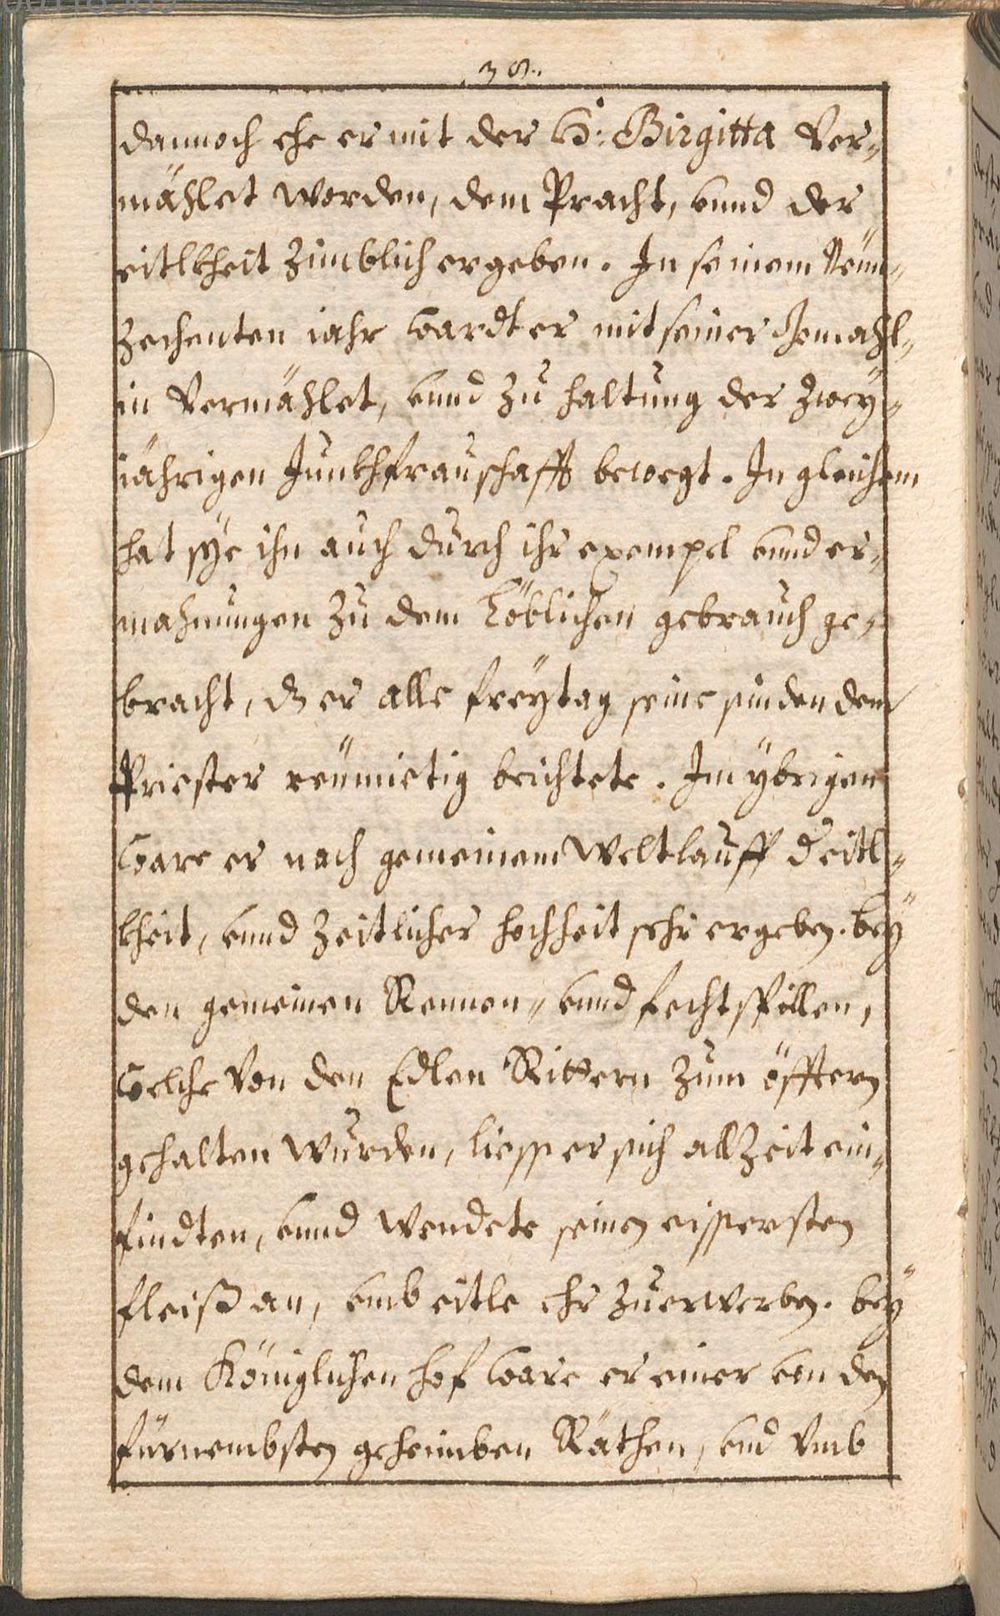 38.
dannoch ehe er mit der H: Birgitta ver-
mählet worden, dem Pracht, vnnd der
eitlkheit zimblich ergeben. In seinem Neün-
zechenten jahr wardt er mit seiner Gemahl-
in vermählet, vnnd zu haltung der zweÿ-
jährigen Junkhfrauschafft bewegt. In gleichem
hat sÿe ihn auch durch ihr exempel vnnd er-
mahnungen zu dem löblichen gebrauch ge-
bracht, dz er alle freÿtag seine sünden dem
Priester reümietig beichtete. Im ÿbrigen
ware er nach gemeinem weltlauff d'eitl-
kheit, vnnd zeitlicher hochheit sehr ergeben. beÿ
den gemeinen Rennen- vnnd fechtspillen,
welche von den Edlen Rittern zum öfftern
gehalten wurden, liess er sich allzeit ein-
findten, vnnd wendete seinen eissersten
fleiß an, vmb eitle ehr zuerwerben. beÿ
dem Königlichen hof ware er einer von den
fürnembsten geheimben Räthen, vnd vmb